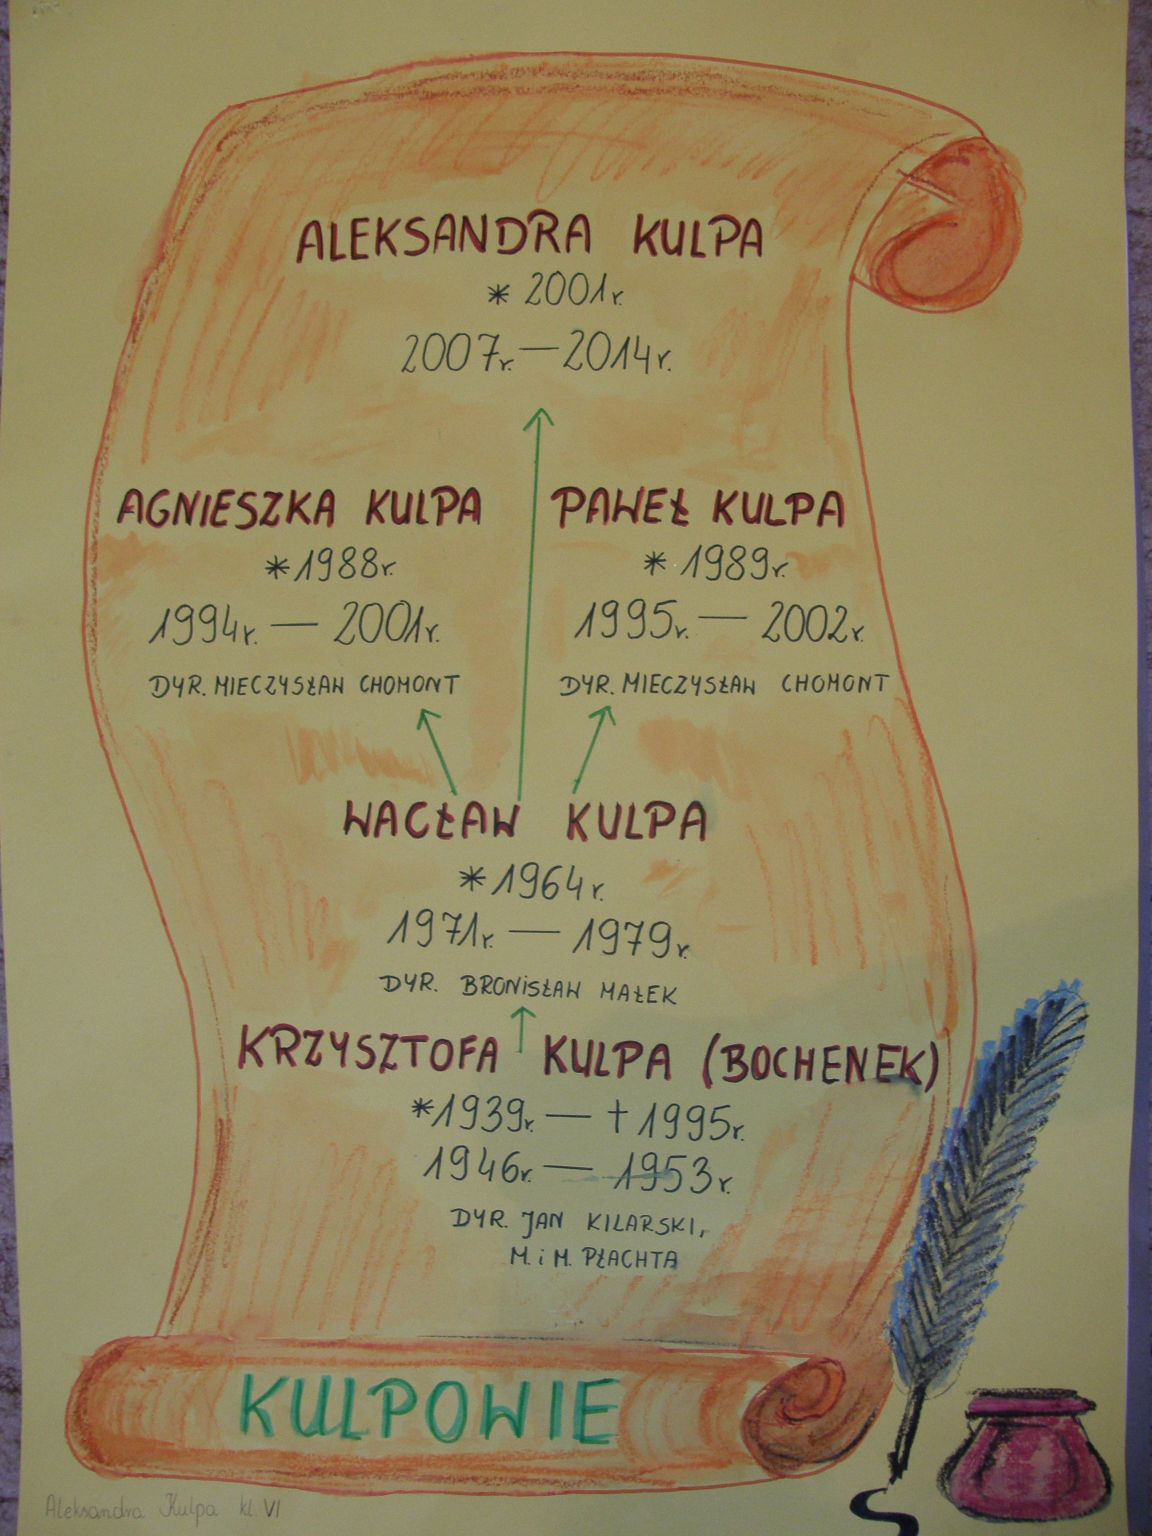 ALEKSANDRA KULPA
* 2001r.
2007r. — 2014r.
AGNIESZKA KULPA
* 1988r.
1994r. — 2001r.
DYR. MIECZYSŁAW CHOMONT
PAWEŁ KULPA
* 1989r.
1995r. — 2002r.
DYR. MIECZYSŁAW CHOMONT
WACŁAW KULPA
* 1964r.
1971r. — 1979r.
DYR. BRONISŁAW MAŁEK
KRZYSZTOFA KULPA (BOCHENEK)
* 1939r. — † 1995r.
1946r. — 1953r.
DYR. JAN KILARSKI,
M. i M. PŁACHTA
KULPOWIE
Aleksandra Kulpa kl. VI